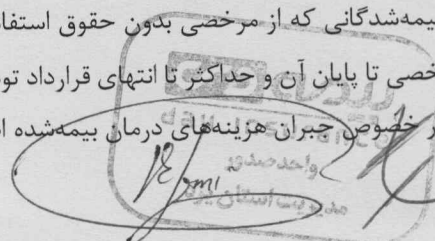 بیمه‌شدگانی که از مرخصی بدون حقوق استفا
خصی تا پایان آن و حداکثر تا انتهای قرارداد تو
ر خصوص جبران هزینه‌های درمان بیمه‌شده ا
واحد صدور
مدیریت استان یزد